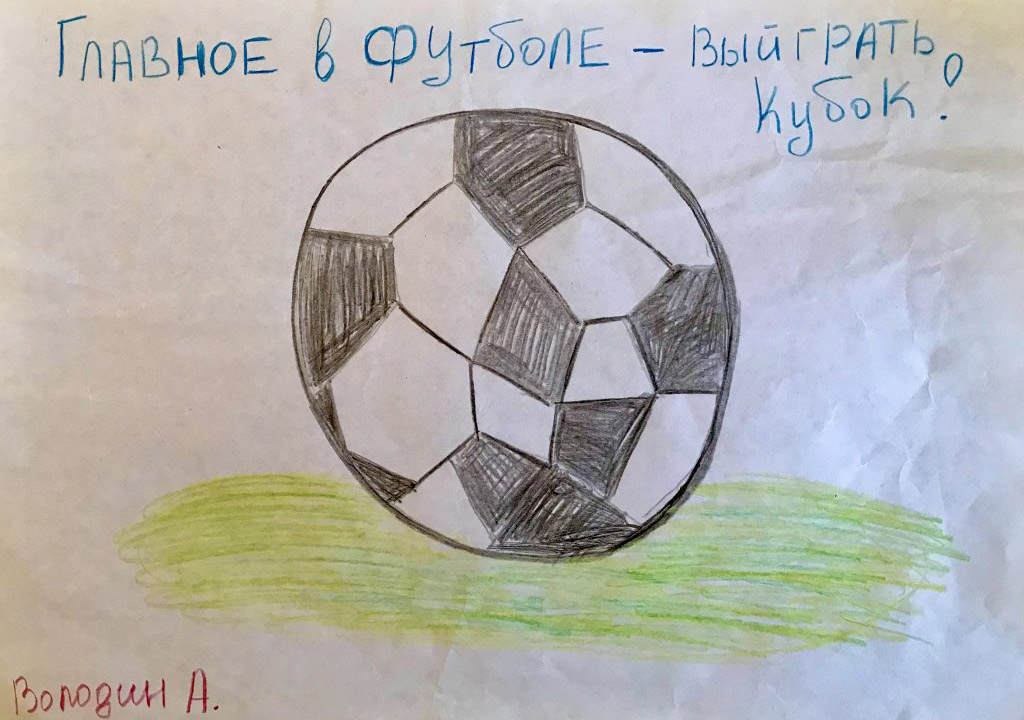 Главное в футболе – выйграть
Кубок!
Володин А.